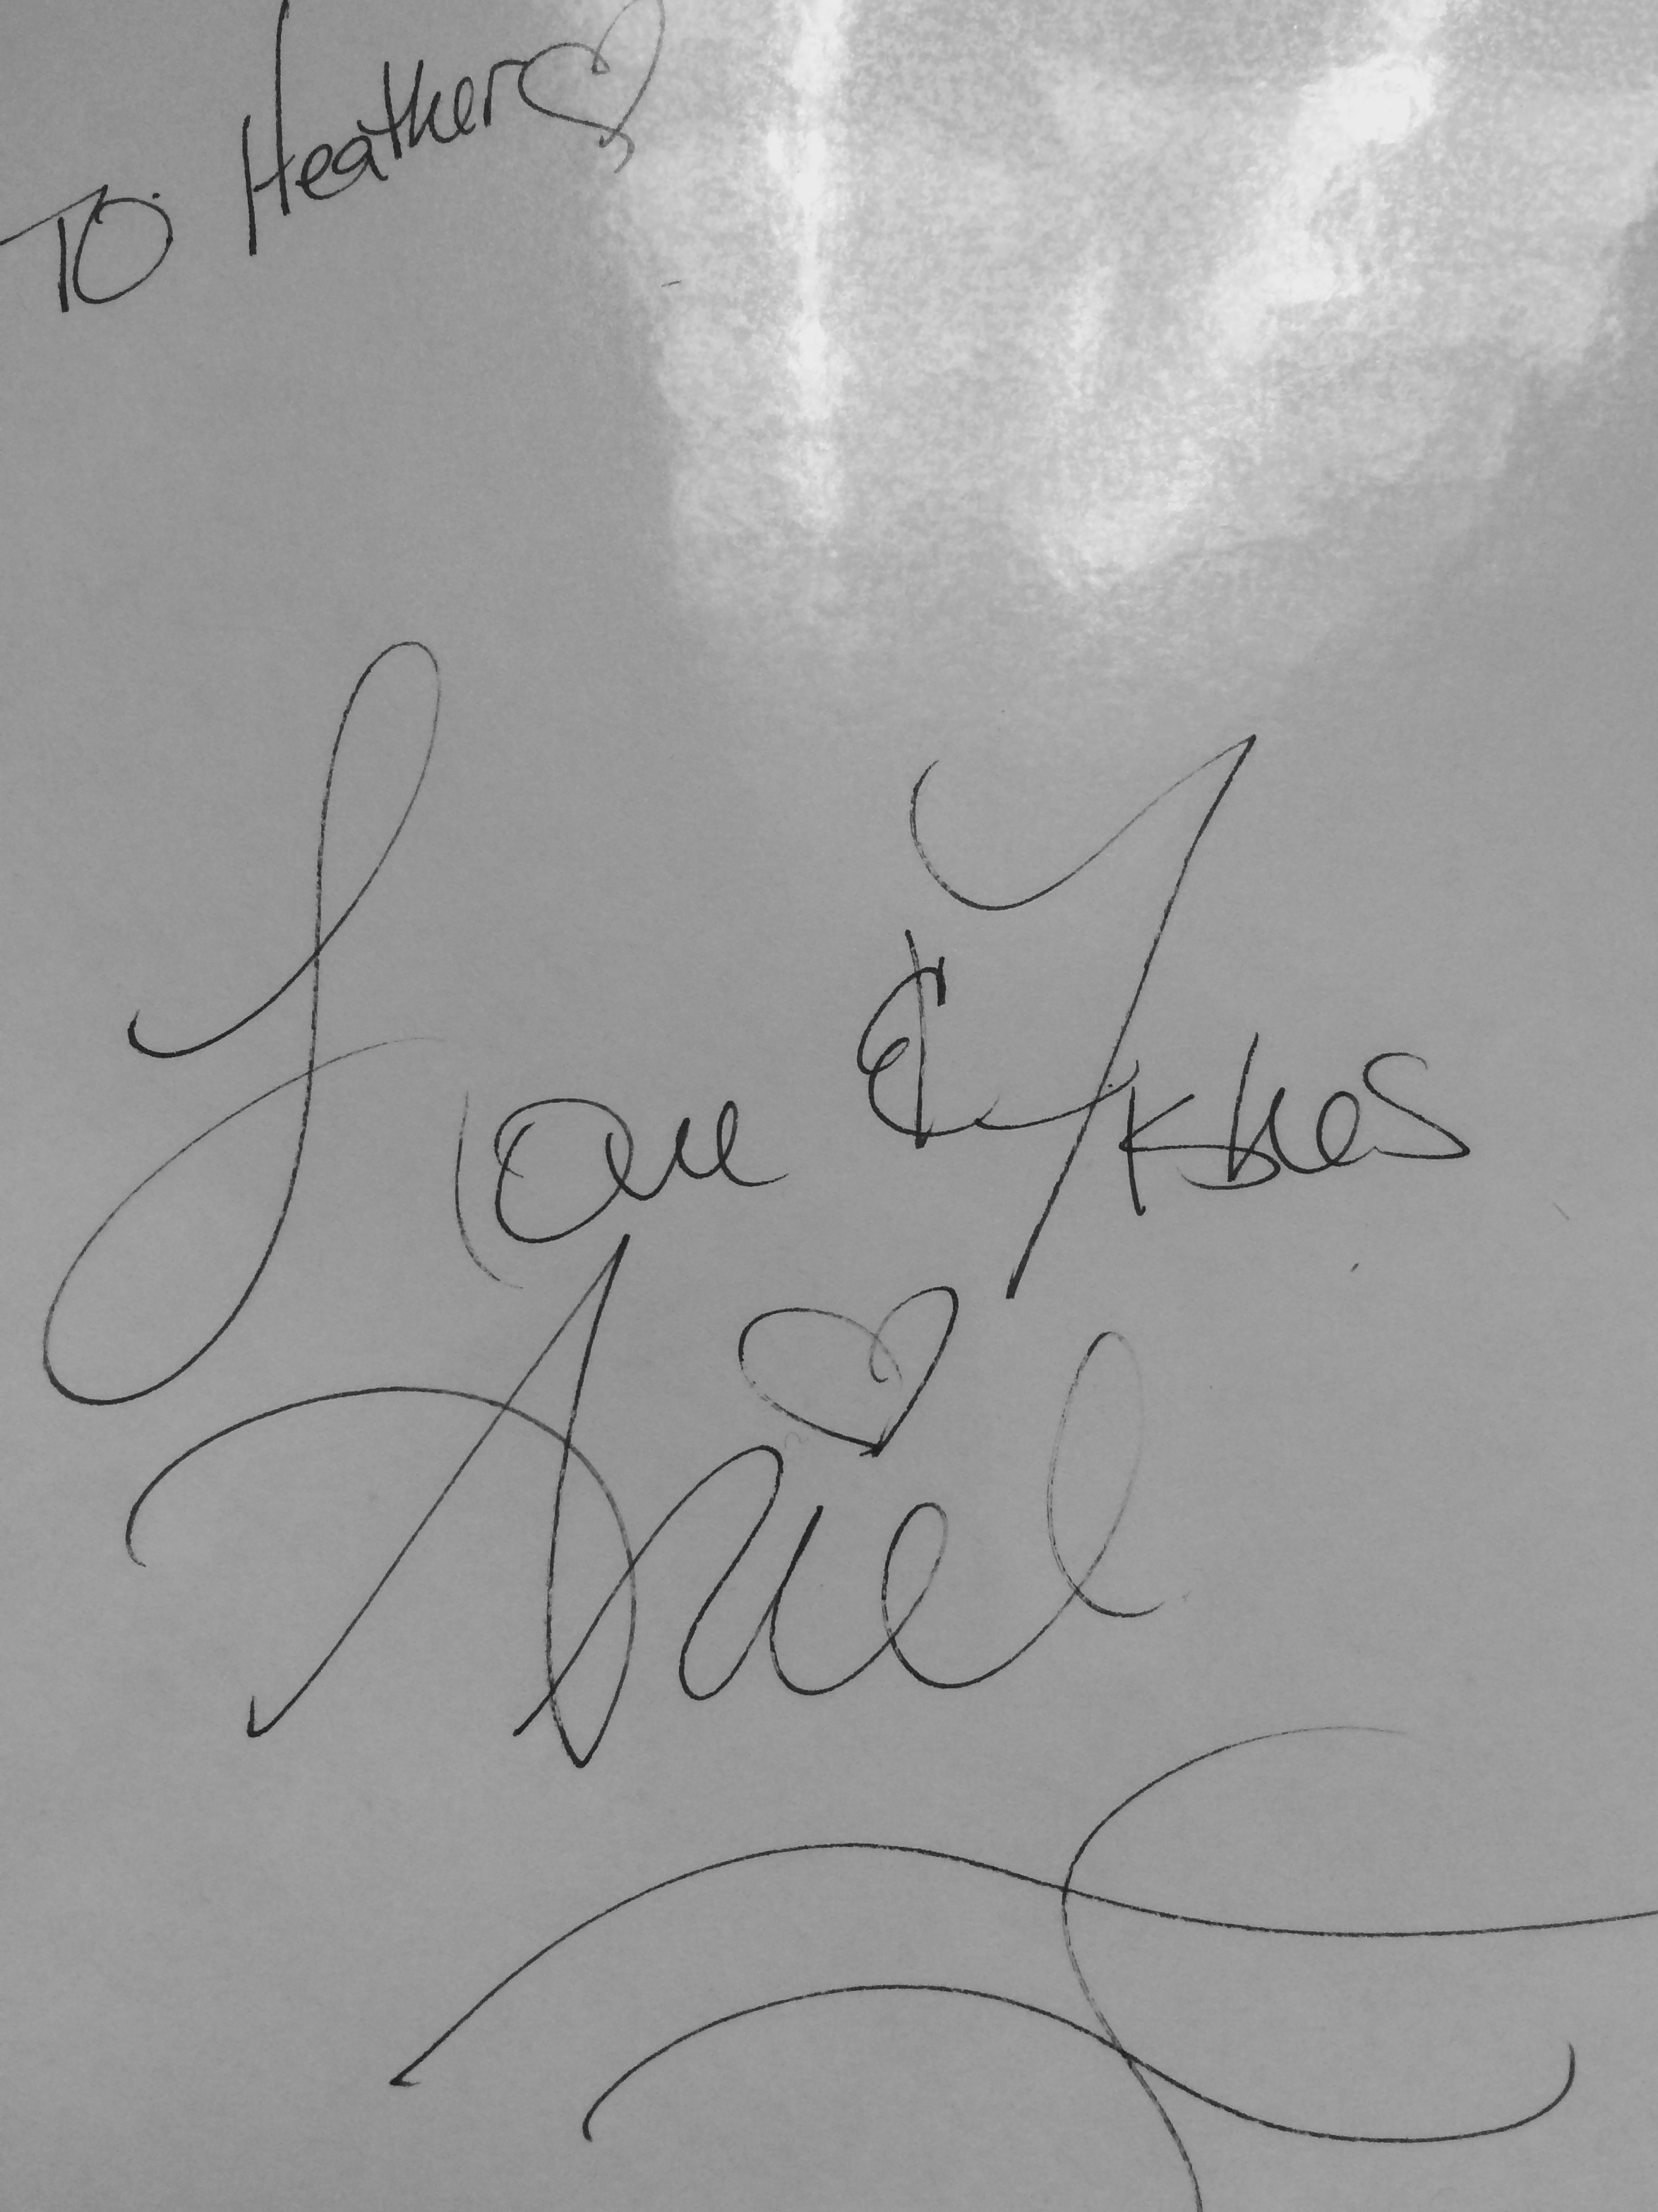 To Heather
Love &
Ariel